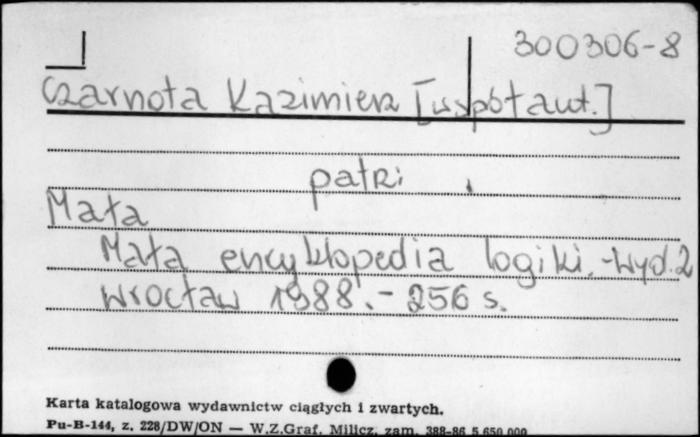 300306-8
Czarnota Kazimierz [współaut.]
patrz:
Mała
Mała encyklopedia logiki.-Wyd.2
Wrocław 1988.- 256 s.
Karta katalogowa wydawnictw ciągłych i zwartych.
Pu-B-144, z. 228/DW/ON — W.Z.Graf. Milicz, zam. 388-86 5.650.000